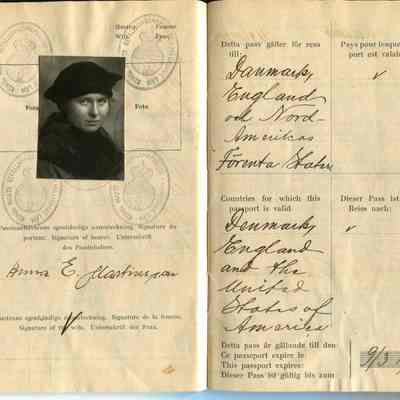 Hustru.
Femme
Wife.
Frau.
Foto
Foto
Passinnehavarens egenhändiga namnteckning. Signature du
porteur. Signature of bearer. Unterschrift
des Passinhabers.
Anna E. Martinsson
Hustruns egenhändiga namnteckning. Signature de la femme.
Signature of wife. Unterschrift der Frau.
Detta pass gäller för resa
till:
Danmark,
England
och Nord-
Amerikas
Förenta Stater
Countries for which this
passport is valid
Denmark,
England
and the
United
States of
America
Detta pass är gällande till den
Ce passeport expire le
This passport expires:
Dieser Pass ist gültig bis zum
Pays pour lesque
port est valab
v
Dieser Pass ist
Reise nach:
v
9/3